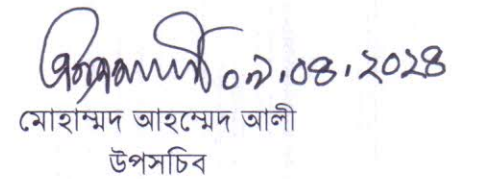 ০৯.০৪.২০২৪
মোহাম্মদ আহম্মেদ আলী
উপসচিব